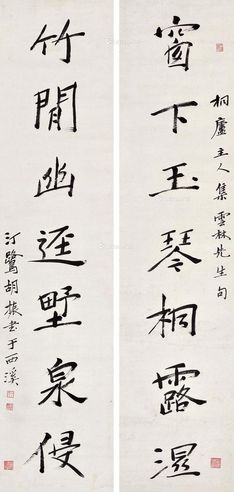 窗下玉琴桐露湿
桐廬主人集雲林先生句
竹閒幽逕墅泉侵
汀鷺胡振書于西溪